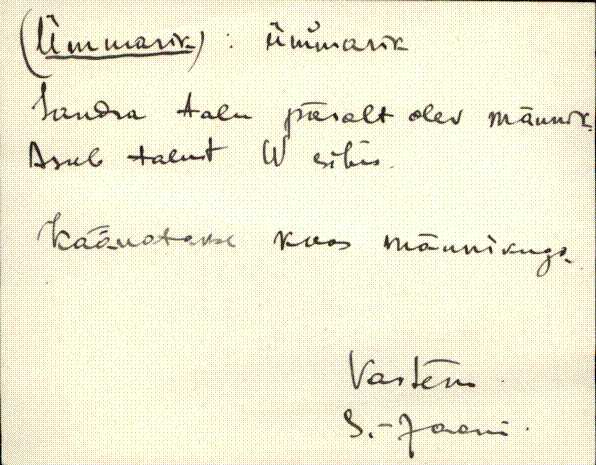 (Ümmarik) : ümmarik
Sandra talu päralt olev männik.
Asub talust W sihis.
Käänatakse koos männikuga.
Vastemõ
S.-Jaani.